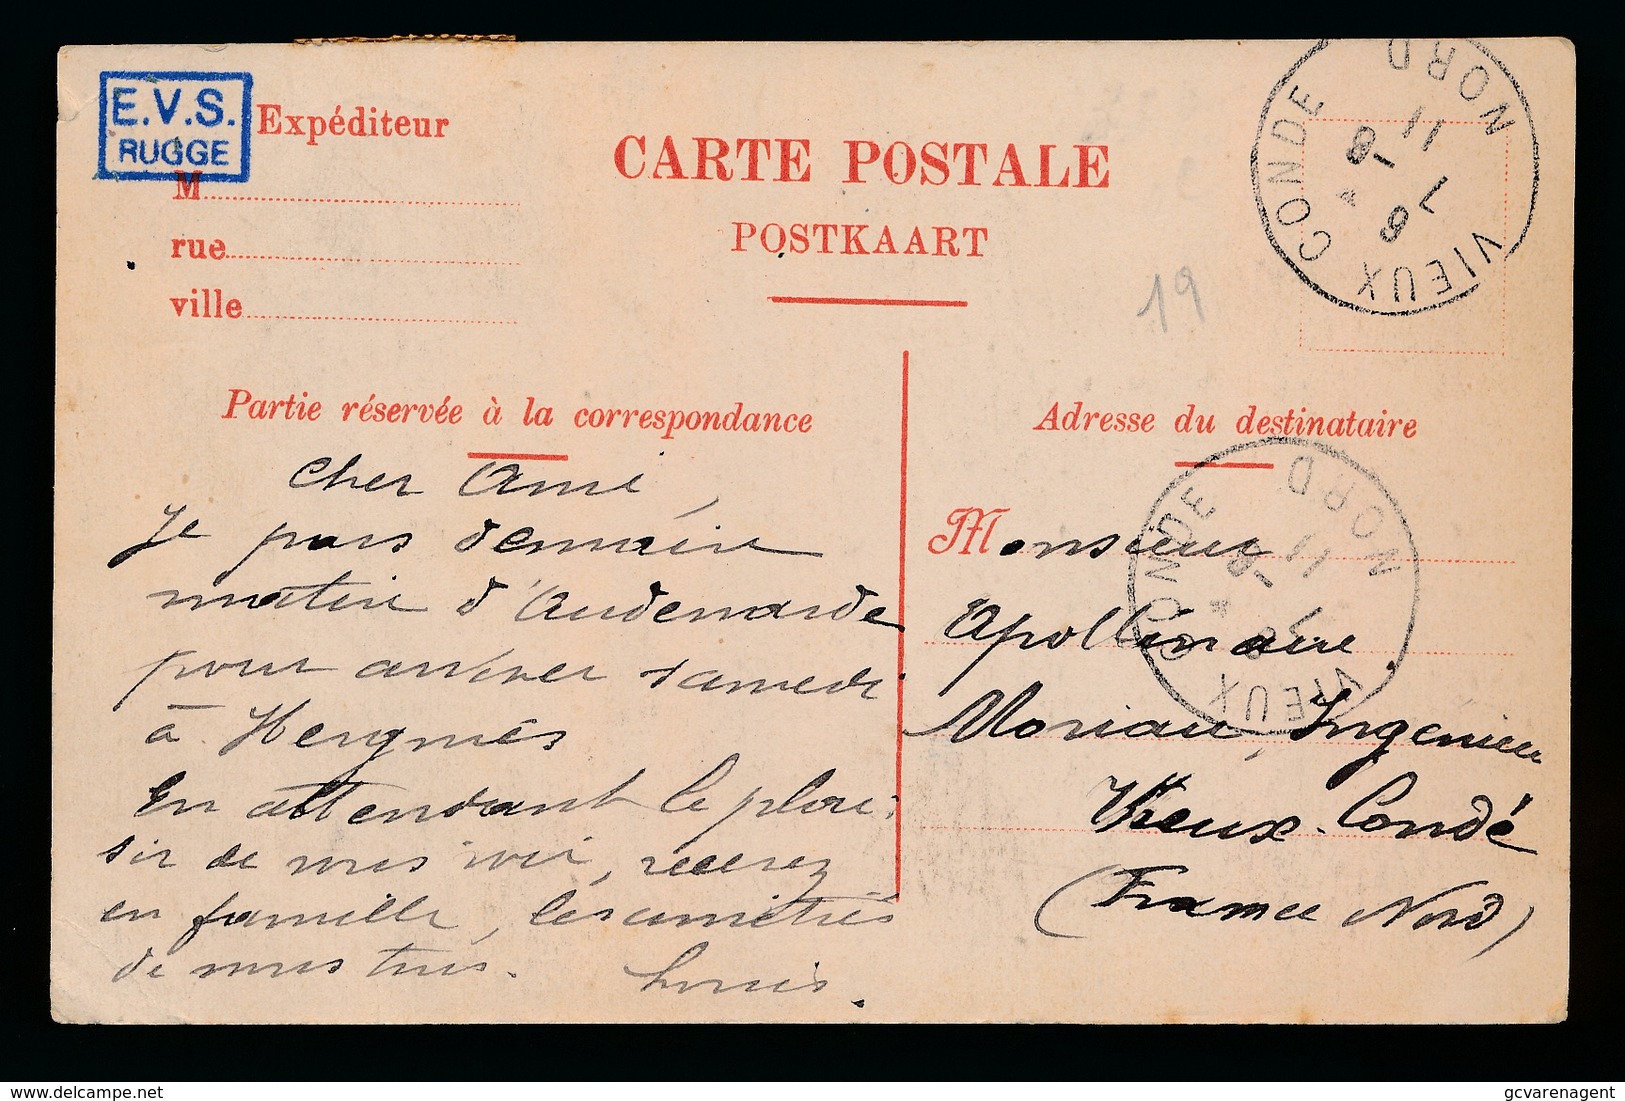 E.V.S.
RUGGE
Expéditeur
M
rue
ville
CARTE POSTALE
POSTKAART
VIEUX CONDE NORD
11
8
7
19
Partie réservée à la correspondance
Adresse du destinataire
Cher Ami,
Je pars demain
matin d'Audenarde
pour arriver samedi
à Hergnies
En attendant le plai-
sir de vous voir, recevez
en famille, les amitiés
de nous tous.
Louis.
Monsieur
Apollinaire
Moriau, Ingénieur
Vieux-Condé
(France Nord)
VIEUX CONDE NORD
11
8
delcampe.net
gcvarenagent